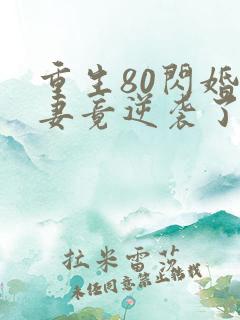 重生80閃婚
妻竟逆袭了
拉米雷莎
未经同意禁止转载